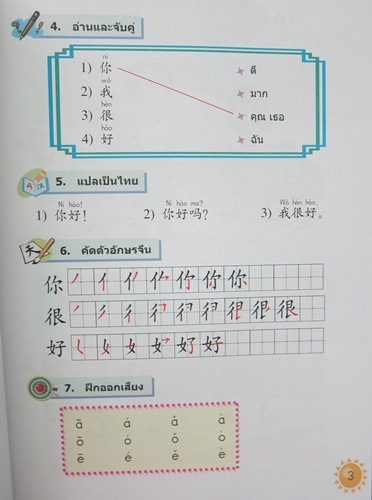 4. อ่านและจับคู่
nǐ
1) 你 ดี
wǒ
2) 我 มาก
hěn
3) 很 คุณ เธอ
hǎo
4) 好 ฉัน
A 汉 5. แปลเป็นไทย
Nǐ hǎo! Nǐ hǎo ma? Wǒ hěn hǎo.
1) 你好! 2) 你好吗? 3) 我很好。
6. คัดตัวอักษรจีน
你
很
好
7. ฝึกออกเสียง
ā á ǎ à
ō ó ǒ ò
ē é ě è
3